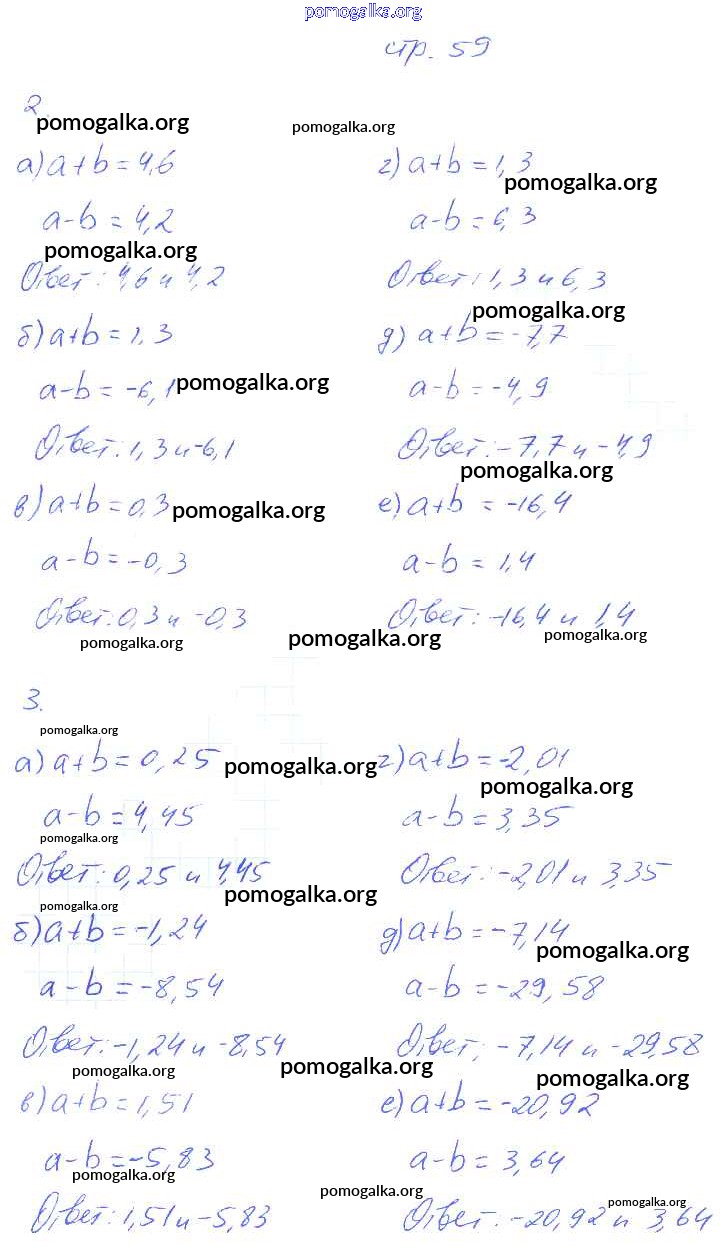 pomogalka.org
стр. 59
2.
pomogalka.org
pomogalka.org
а) a+b = 4,6
a-b = 4,2
pomogalka.org
Ответ: 4,6 и 4,2
б) a+b = 1,3
a-b = -6,1
pomogalka.org
Ответ: 1,3 и -6,1
в) a+b = 0,3
pomogalka.org
a-b = -0,3
Ответ: 0,3 и -0,3
pomogalka.org
pomogalka.org
г) a+b = 1,3
pomogalka.org
a-b = 6,3
Ответ: 1,3 и 6,3
pomogalka.org
д) a+b = -7,7
a-b = -4,9
Ответ: -7,7 и -4,9
pomogalka.org
е) a+b = -16,4
a-b = 1,4
Ответ: -16,4 и 1,4
pomogalka.org
3.
pomogalka.org
а) a+b = 0,25
pomogalka.org
a-b = 4,45
pomogalka.org
Ответ: 0,25 и 4,45
pomogalka.org
pomogalka.org
б) a+b = -1,24
a-b = -8,54
Ответ: -1,24 и -8,54
pomogalka.org
pomogalka.org
в) a+b = 1,51
a-b = -5,83
pomogalka.org
Ответ: 1,51 и -5,83
г) a+b = -2,01
pomogalka.org
a-b = 3,35
Ответ: -2,01 и 3,35
д) a+b = -7,14
pomogalka.org
a-b = -29,58
Ответ: -7,14 и -29,58
pomogalka.org
е) a+b = -20,92
a-b = 3,64
pomogalka.org
pomogalka.org
Ответ: -20,92 и 3,64